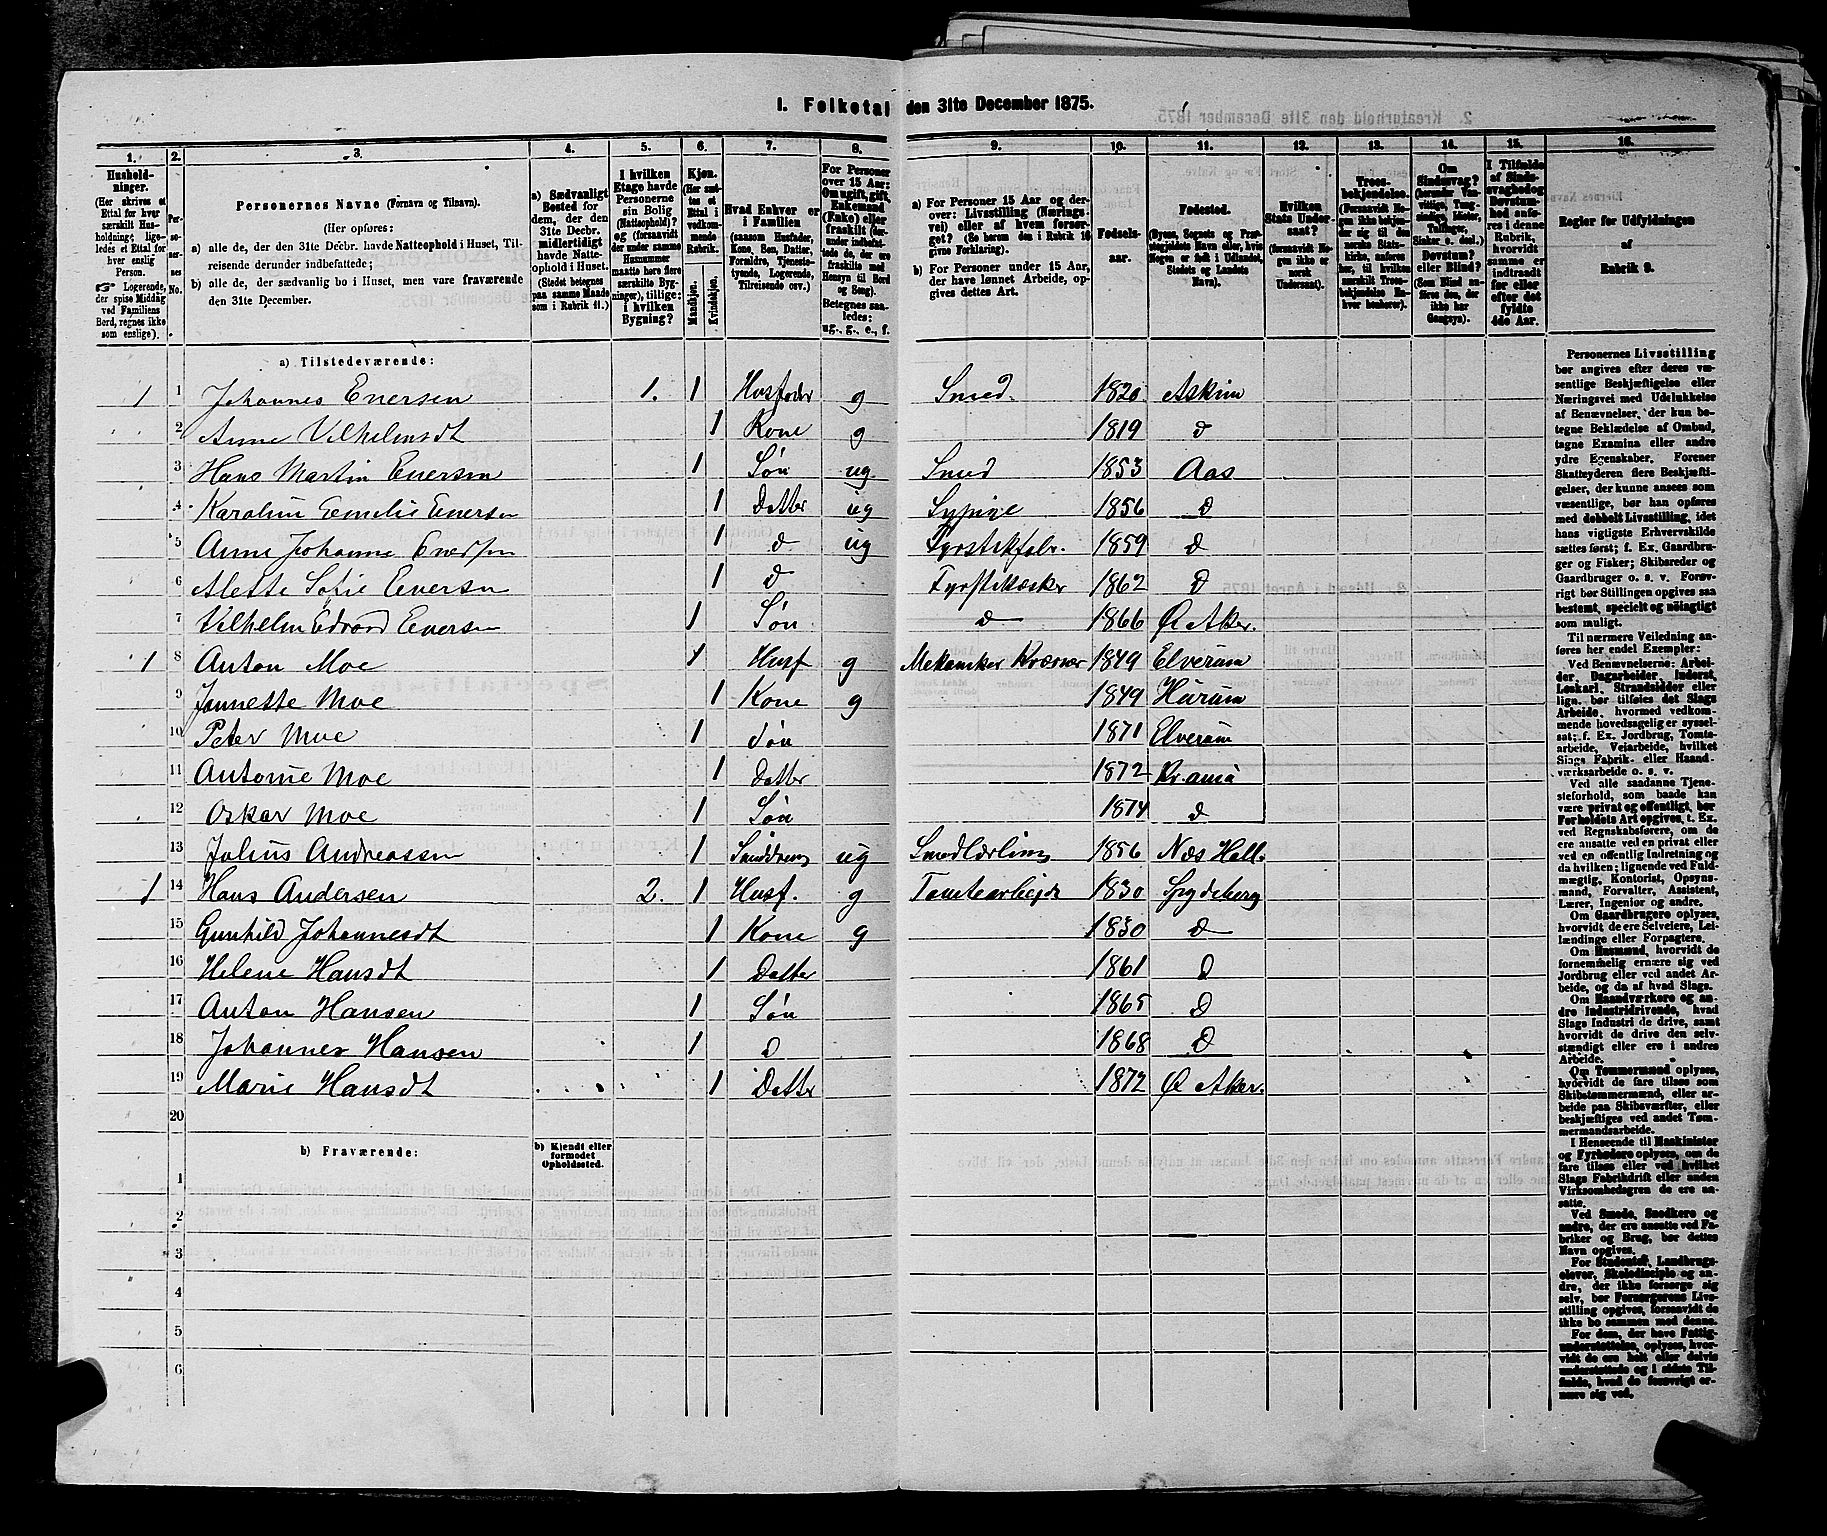 1. Folketal den 31te December 1875.
1. 2. 3. 4. 5. 6. 7. 8. 9. 10. 11. 12. 13. 14. 15. 16.
Husholdninger.
(Her skrives et Ettal for hver særskilt Husholdning; ligeledes et Ettal for hver enslig Person.
☞ Logerende, der spise Middag ved Familiens Bord, regnes ikke som enslige).
Personernes No.
Personernes Navne (Fornavn og Tilnavn).
(Her opføres:
a) alle de, der den 31te Decbr. havde Natteophold i Huset, Tilreisende derunder indbefattede;
b) alle de, der sædvanlig bo i Huset, men vare fraværende den 31te December.
a) Sædvanligt Bosted for dem, der den 31te Decbr. midlertidigt havde Natteophold i Huset.
(Stedet betegnes paa samme Maade som i Rubrik 11.)
I hvilken Etage havde Personerne sin Bolig (Natteophold)? og (forsaavidt der under samme Husnummer maatte høre flere særskilte Bygninger), tillige: i hvilken Bygning?
Kjøn.
(Her sættes et Ettal i vedkommende Rubrik.
Mandkjøn.
Kvindekjøn.
Hvad Enhver er i Familien
(saasom Husfader, Kone, Søn, Datter, Forældre, Tjenestetyende, Logerende, Tilreisende osv.)
For Personer over 15 Aar: Om ugift, gift, Enkemand (Enke) eller fraskilt
Betegnes saaledes:
ug., g., e., f.
a) For Personer 15 Aar og derover: Livsstilling (Næringsvei) eller af hvem forsørget? (Se herom den i Rubrik 16 givne Forklaring).
b) For Personer under 15 Aar, der have lønnet Arbeide, opgives dettes Art.
Fødselsaar.
Fødested.
(Byens, Sognets og Præstegjeldets Navn eller, hvis Nogen er født i Udlandet, Stedets og Landets Navn).
Hvilken Stats Undersaat?
(forsaavidt Nogen ikke er norsk Undersaat).
Troesbekjendelse.
Om Sindssvag? Døvstum? eller Blind?
I Tilfælde af Sindssvaghed og Døvstumhed anføres i denne Rubrik, hvorvidt samme er indtraadt før eller efter det fyldte 4de Aar.
Regler for Udfyldningen
af
Rubrik 9.
a) Tilstedeværende:
1 1 Johannes Enersen 1. 1 Husfader g Smed. 1820 Askim
2 Anne Vilhelmsdt 1 Kone g 1819 d
3 Hans Martin Enersen 1 Søn ug. Smed 1853 Aas
4 Karoline Emelie Enersen 1 Datter ug Sypige 1856 d
5 Anne Johanne Enersen 1 d ug Fyrstikfabr. 1859 d
6 Alette Sofie Enersen 1 d Fyrstikæsker 1862 d
7 Vilhelm Edvard Enersen 1 Søn d 1866 Ø Aker.
1 8 Anton Moe 1 Husf g Mekaniker 1849 Elverum
9 Jannette Moe 1 Kone g 1849 Hurum
10 Peter Moe 1 Søn 1871 Elverum
11 Antonie Moe 1 Datter 1872 Kr.ania
12 Oskar Moe 1 Søn 1874 d
13 Julius Andreassen 1 ug Smedlærling 1856 Næs Hall.
1 14 Hans Andersen 2. 1 Husf. g Tomtearbeide 1830 Spydeberg
15 Gunhild Johannesdt 1 Kone g 1830 d
16 Helene Hansdt 1 Datter 1861 d
17 Anton Hansen 1 Søn 1865 d
18 Johannes Hansen 1 d 1868 d
19 Marie Hansdt 1 Datter 1872 Ø Aker.
20
b) Fraværende:
b) Kjendt eller formodet Opholdssted.
1
2
3
4
5
6
Personernes Livsstilling
bør angives efter deres væsentlige Beskjæftigelse eller
Næringsvei med Udelukkelse
af Benævnelser, der kun betegne Beklædelse af Ombud,
tagne Examina eller andre
ydre Egenskaber. Forener
Skatteyderen flere Beskjæftigelser, der kunne ansees som
væsentlige, bør han opføres
med dobbelt Livsstilling, idet
hans vigtigste Erhvervskilde
sættes først; f. Ex. Gaardbruger og Fisker; Skibsreder og
Gaardbruger o. s. v. Forøvrigt bør Stillingen opgives saa
bestemt, specielt og nøiagtigt
som muligt.
Til nærmere Veiledning anføres her endel Exempler:
Ved Benævnelserne: Arbeider, Dagarbeider, Inderst,
Løskarl, Strandsidder eller
lign. bør tilføies det Slags
Arbeide, hvormed vedkommende hovedsagelig er sysselsat; f. Ex. Jordbrug, Tomtearbeide, Veiarbeide, hvilket
Slags Fabrik- eller Haandværksarbeide o. s. v.
Ved alle saadanne Tjenesteforhold, som baade kan
være privat og offentligt, bør
Forholdets Art opgives, t. Ex.
ved Regnskabsførere, om de
ere ansatte ved en privat eller
ved en offentlig Indretning og
da hvilken; lignende ved Fuldmægtig, Kontorist, Opsynsmand, Forvalter, Assistent,
Lærer, Ingeniør og andre.
Om Gaardbrugere oplyses,
hvorvidt de ere Selveiere, Leilændinge eller Forpagtere.
Om Husmænd, hvorvidt de
fornemmelig ernære sig ved
Jordbrug eller ved andet Arbeide, og da af hvad Slags.
Om Haandværkere og andre Industridrivende, hvad
Slags Industri de drive, samt
hvorvidt de drive den selvstændigt eller ere i andres
Arbeide.
Om Tømmermænd oplyses,
hvorvidt de fare tilsøs som
Skibstømmermænd, eller arbeide paa Skibsværfter, eller
beskjæftiges ved andet Tømmermandsarbeide.
I Henseende til Maskinister
og Fyrbødere oplyses, om de
fare tilsøs eller ved hvilket
Slags Fabrikdrift eller anden
Virksomhed de ere ansatte.
Ved Smede, Snedkere og
andre, der ere ansatte ved Fabriker og Brug, bør dettes
Navn opgives.
For Studenter, Landbrugselever, Skoledisciple og andre, der ikke forsørge sig
selv, bør Forsørgerens Livsstilling opgives, forsaavidt de
ikke bo sammen med denne.
For dem, der have Fattigunderstøttelse, oplyses, hvorvidt de ere helt eller delvis
understøttede og i sidste Tilfælde, hvad de forøvrigt ernære sig ved.